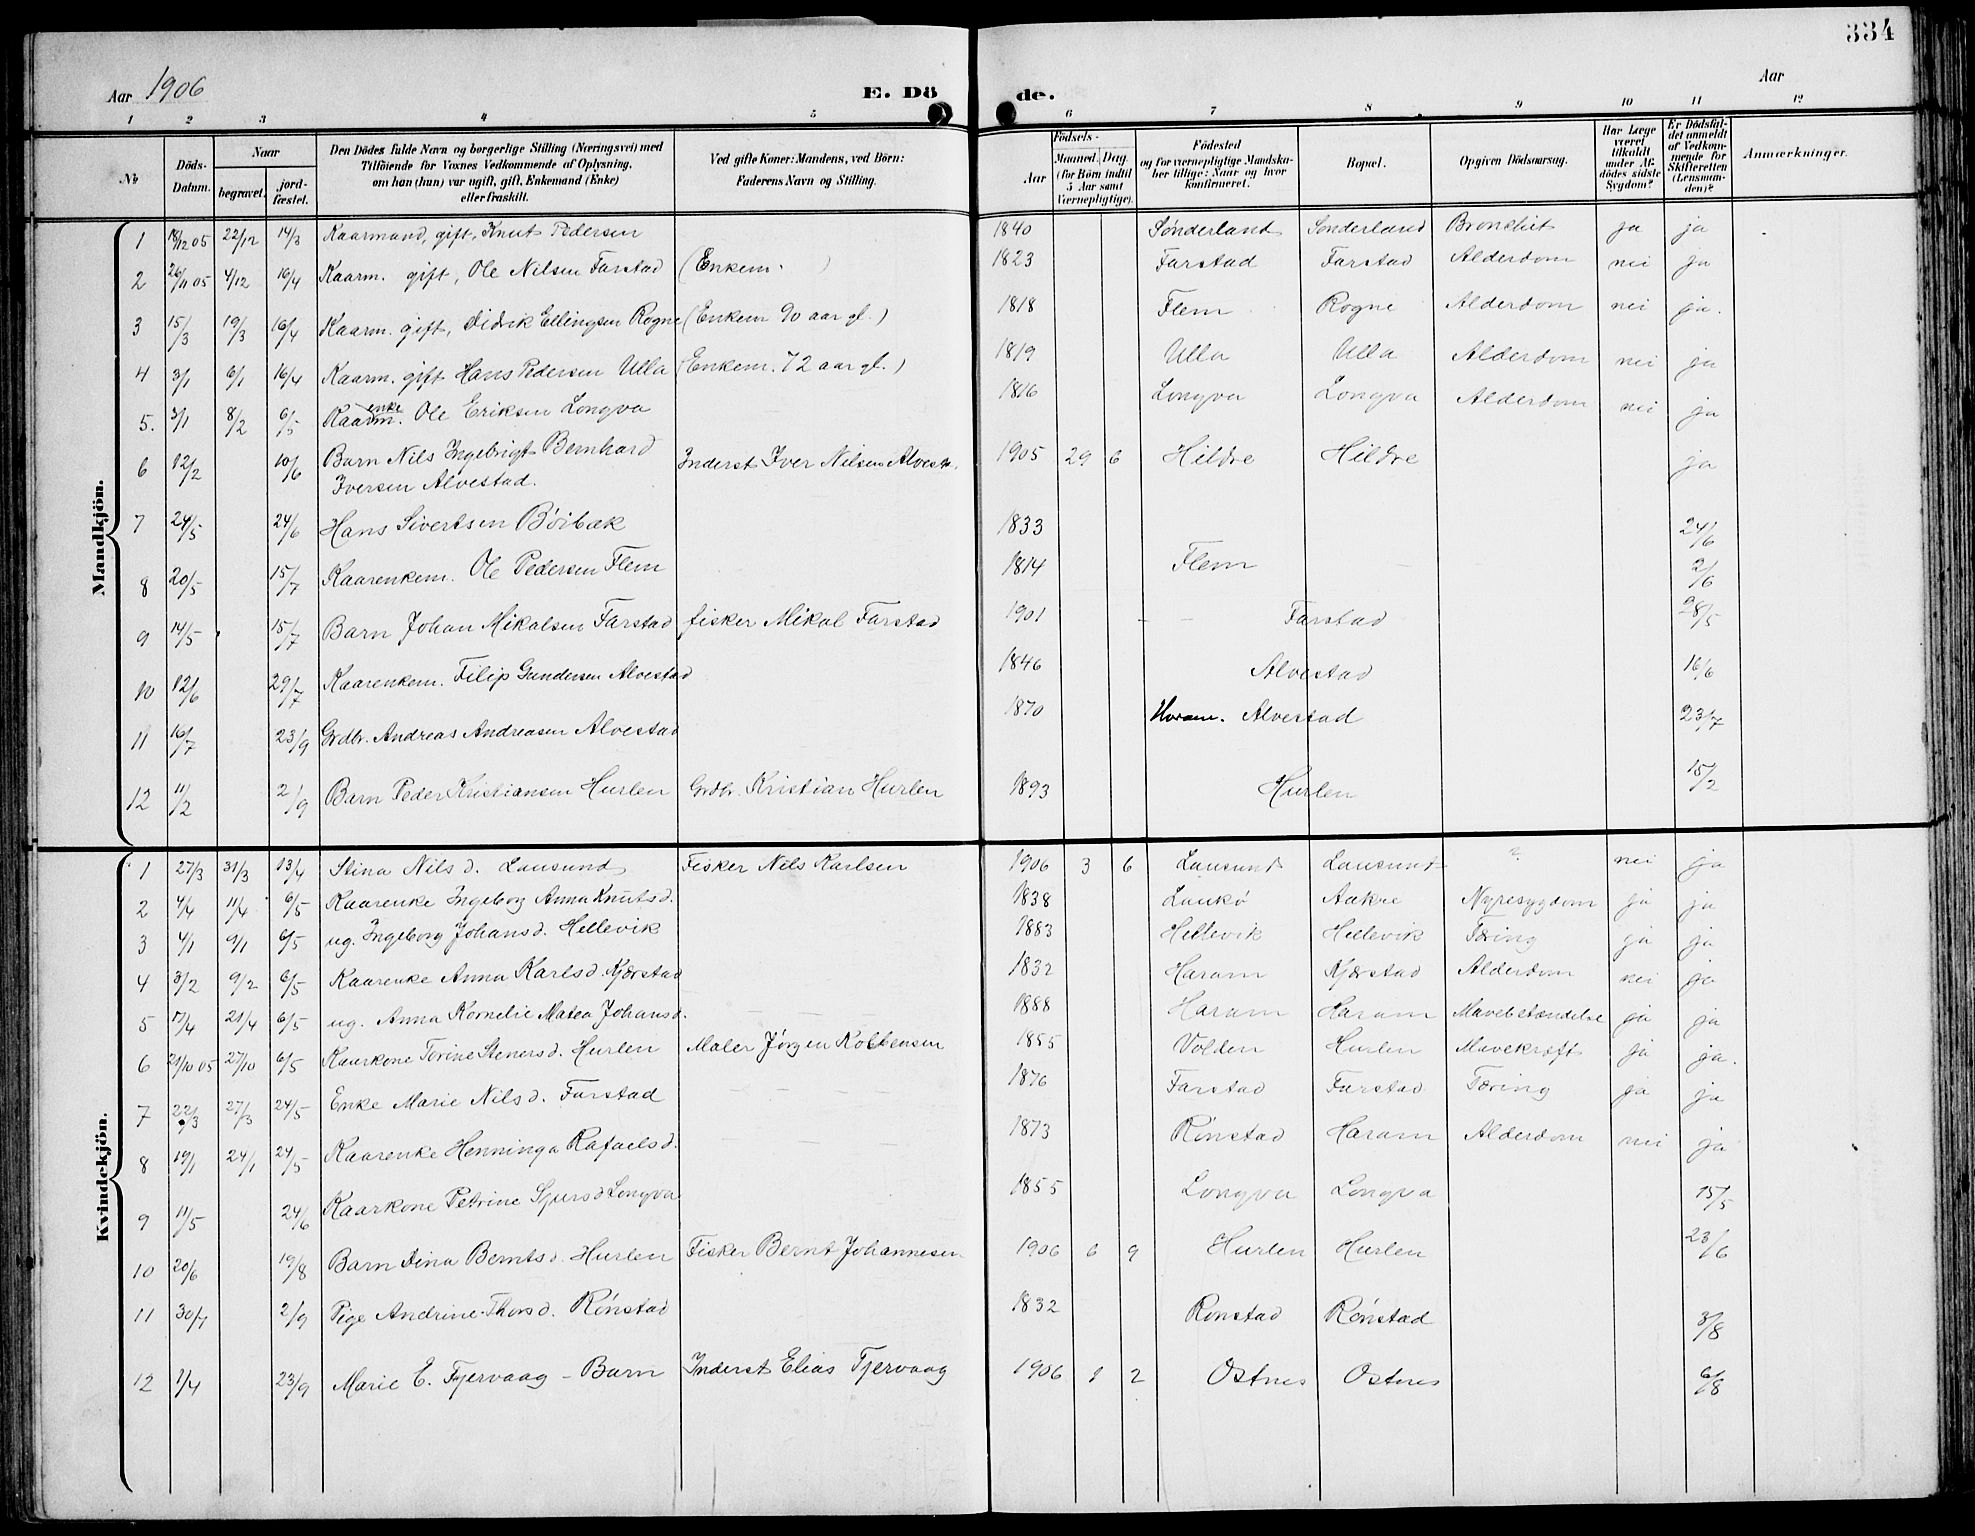 334
Aar 1906 E. Dö de. Aar
1 2 3 4 5 6 7 8 9 10 11 12
No Döds-Datum. Naar begravet. jord-fæstet. Den Dödes fulde Navn og borgerlige Stilling (Næringsvei) med Tilföiende for Voxnes Vedkommende af Oplysning, om han (hun) var ugift, gift, Enkemand (Enke) eller fraskilt. Ved gifte Koner: Mandens, ved Börn: Faderens Navn og Stilling. Födsels- Aar Maaned. Dag. (for Börn indtil 5 Aar samt Værnepligtige). Födested og for værnepligtige Mandskaber tillige: Naar og hvor konfirmeret. Bopæl. Opgiven Dödsaarsag. Har Læge været tilkaldt under Afdödes sidste Sygdom? Er Dödsfaldet anmeldt af Vedkommende for Skifteretten (Lensmanden)? Anmærkninger.
Mandkjön.
1 18/12 05 22/12 14/3 Kaarmand, gift, Knut Pedersen 1840 Sönderland Sonderland Bronchit ja ja
2 26/11 05 4/12 16/4 Kaarm. gift, Ole Nilsen Farstad (Enkem. ) 1823 Farstad Farstad Alderdom nei ja
3 15/3 19/3 16/4 Kaarm. gift, Didrik Ellingsen Rogne (Enkem 90 aar gl.) 1818 Flem Rogne Alderdom nei ja.
4 3/1 6/1 16/4 Kaarm. gift Hans Pedersen Ulla (Enkem. 72 aar gl.) 1819 Ulla Ulla Alderdom nei ja
5. 3/1 8/2 6/5 Kaarm. enke Ole Eriksen Longva 1816 Longva Longva Alderdom nei ja
6 12/2 10/6 Barn Nils Ingebrigt Bernhard Inderst Iver Nilsen Alvest. 1905 29 6 Hildre Hildre ja
Iversen Alvestad.
7 24/5 24/6 Hans Sivertsen Böibæk 1833 24/6
8 20/5 15/7 Kaarenkem. Ole Pedersen Flem 1814 Flem 2/6
9 14/5 15/7 Barn Johan Mikalsen Farstad fisker Mikal Farstad 1901 - - Farstad 28/5
10 12/6 29/7 Kaarenkem. Filip Gundersen Alvestad 1846 Alvestad 16/6
11 16/7 23/9 Grdbr. Andreas Andreasen Alvestad 1870 Haram. Alvestad 23/7
12 11/2 2/9 Barn Peder Kristiansen Hurlen Grdbr. Kristian Hurlen 1893 Hurlen 15/2
Kvindekjön.
1 27/3 31/3 13/4 Stina Nils d. Lausund Fisker Nils Karlsen 1906 3 6 Lausund Lausund ? nei ja
2 4/4 11/4 6/5 Kaarenke Ingeborg Anna Knuts d. 1838 Laukö Aakre Nyresygdom ja ja
3 4/1 9/1 6/5 ug. Ingeborg Johans d. Hellevik 1883 Hellevik Hellevik Tæring ja ja
4 3/2 9/2 6/5 Kaarenke Anna Karls d. Kjærstad 1832 Haram Kjærstad Alderdom nei ja
5 17/4 21/4 6/5 ug. Anna Kornelie Matea Johans d. 1888 Haram Haram ja ja
6 21/10 05 27/10 6/5 Kaarkone Torine Steners d. Hurlen Maler Jörgen 1855 Volden Hurlen Mavekræft ja ja.
7 22/3 27/3 24/5 Enke Marie Nils d. Farstad 1876 Farstad Farstad Tæring ja ja
8 19/1 24/1 24/5 Kaarenke Henninga Rafaels d. 1873 Rönstad Haram Alderdom nei ja
9 11/5 24/6 Kaarkone Petrine Sjurs d Longva 1855 Longva Longva 15/5
10 20/6 19/8 Barn Dina Bernts d. Hurlen Fisker Bernt Johannesen 1906 6 9 Hurlen Hurlen 23/6
11 30/7 2/9 Pige Andrine Thors d. Rönstad 1832 Ronstad Rönstad 3/8
12 1/4 23/9 Marie E. Fjervaag - Barn Inderst Elias Fjervaag 1906 1 2 Ostnes Ostnes 6/8